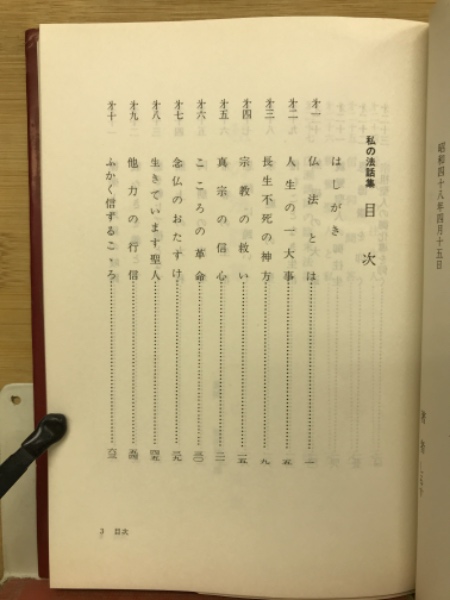 昭和四十八年四月十五日
私の法話集 目次
はしがき
才一 仏法とは……一
才二 人生の一大事……五
才三 長生不死の神方……九
才四 宗教の救い……一五
才五 真宗の信心……二一
才六 こころの革命……三〇
才七 念仏のおたすけ……三九
才八 生きています聖人……四五
才九 他力の行信……五四
才十 ふかく信ずるこゝろ……六三
3 目次